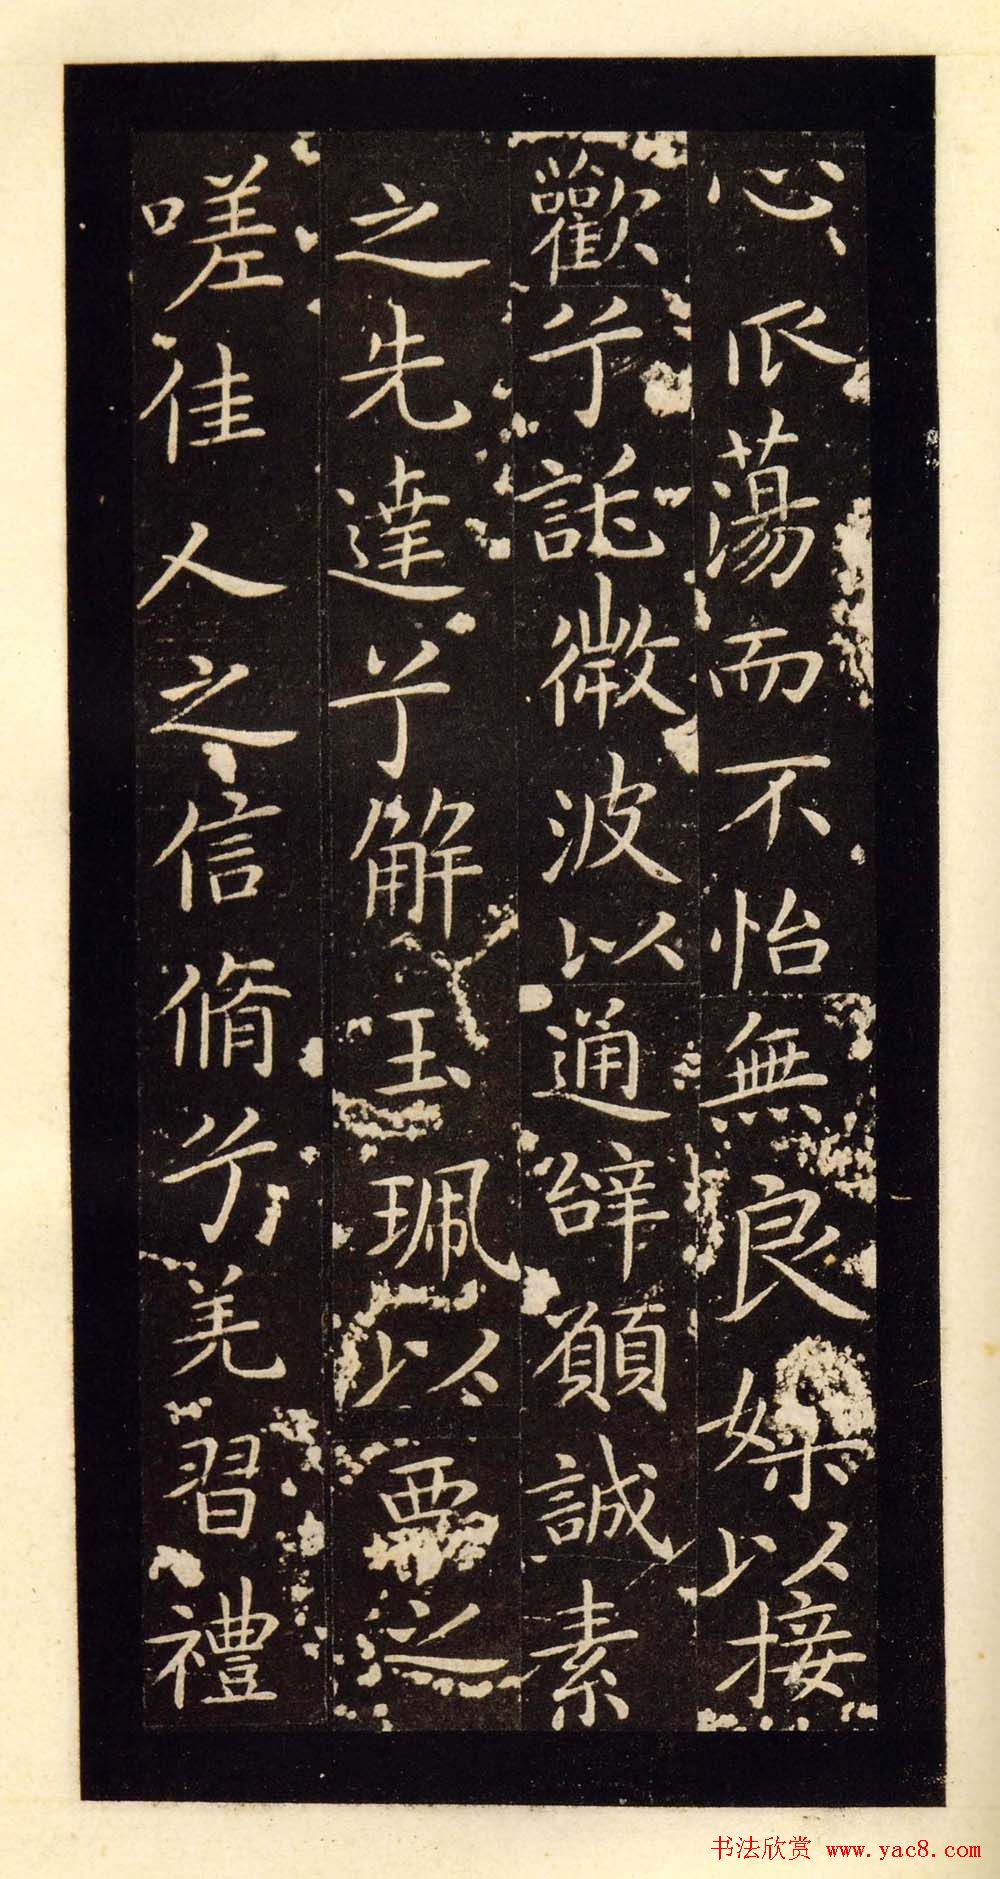 心㳅蕩而不怡無良媒以接
歡兮託微波以通辭願誠素
之先達兮解玉珮以要之
嗟佳人之信脩兮羌習禮
书法欣赏 www.yac8.com